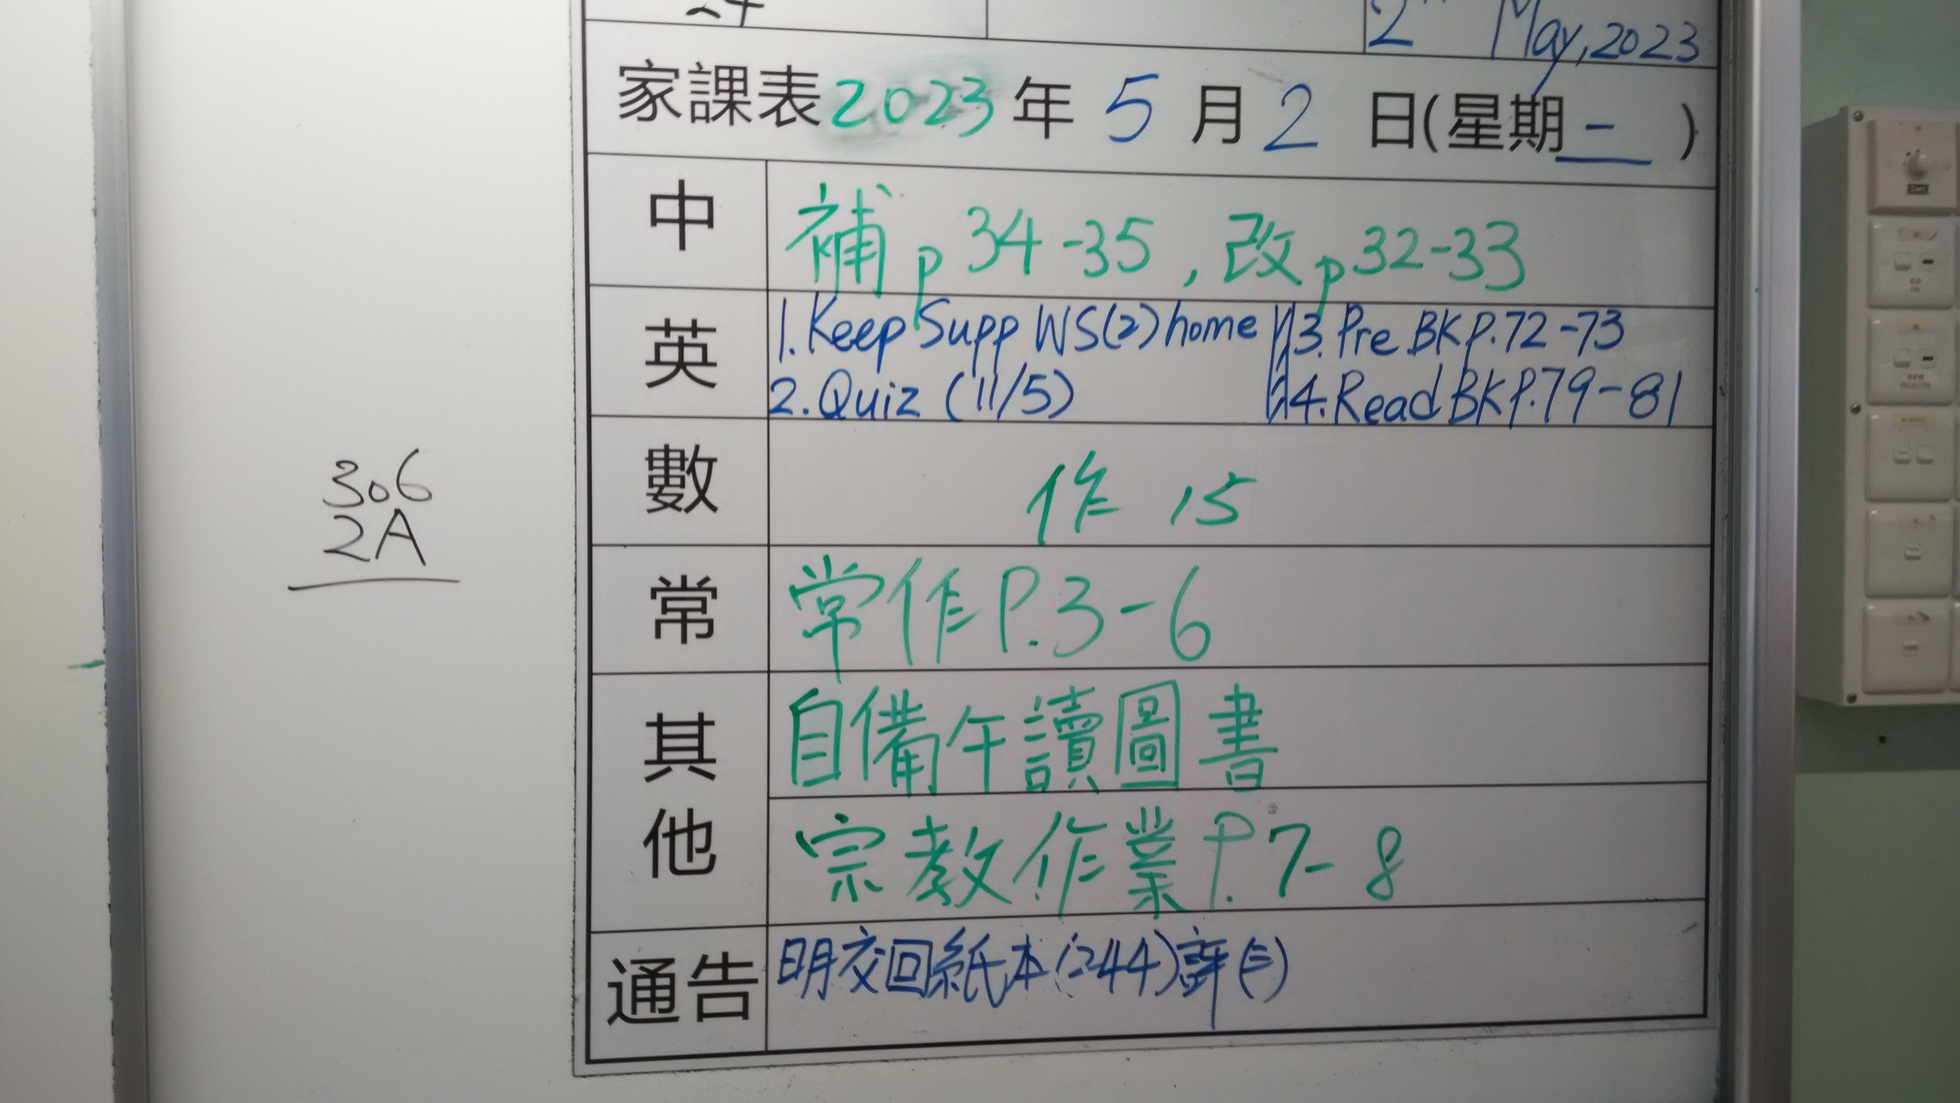 2nd May, 2023
家課表2023年5月2日(星期二)
中 補p34-35,改p32-33
英 1.Keep Supp WS(2)home 3.Pre.BKP.72-73
2.Quiz (11/5) 4.Read BKP.79-81
數 作 15
306
2A
常 常作P.3-6
其他 自備午讀圖書
宗教作業P.7-8
通告 明交回紙本(244)